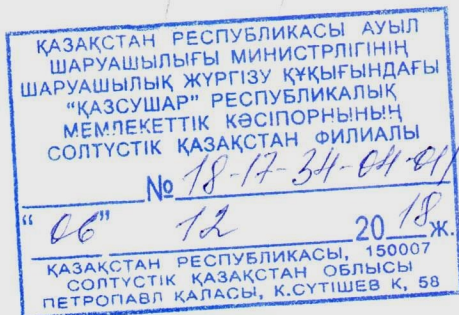 ҚАЗАҚСТАН РЕСПУБЛИКАСЫ АУЫЛ
ШАРУАШЫЛЫҒЫ МИНИСТРЛІГІНІҢ
ШАРУАШЫЛЫҚ ЖҮРГІЗУ ҚҰҚЫҒЫНДАҒЫ
"ҚАЗСУШАР" РЕСПУБЛИКАЛЫҚ
МЕМЛЕКЕТТІК КӘСІПОРНЫНЫҢ
СОЛТҮСТІК ҚАЗАҚСТАН ФИЛИАЛЫ
№ 18-17-34-04-01/
"06" 12 2018ж.
ҚАЗАҚСТАН РЕСПУБЛИКАСЫ, 150007
СОЛТҮСТІК ҚАЗАҚСТАН ОБЛЫСЫ
ПЕТРОПАВЛ ҚАЛАСЫ, К.СҮТІШЕВ К, 58